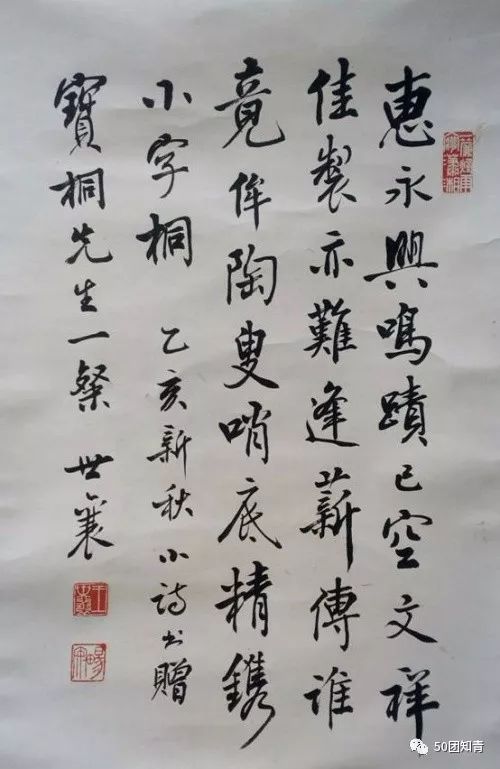 惠永興鳴蹟已空文祥
佳製亦難逢薪傳誰
竟侔陶叟哨底精鐫
小字桐 乙亥新秋小詩書贈
寶桐先生一粲 世襄
50团知青